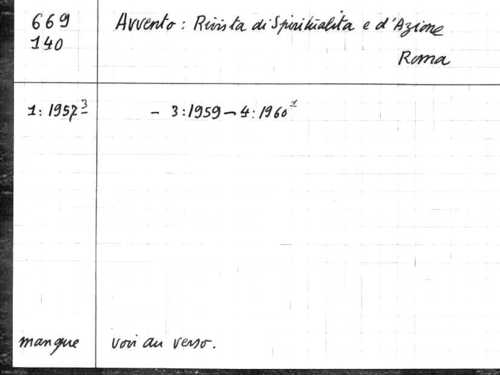 669 Avvento: Rivista di Spiritualita e d'Azione
140 Roma
1: 1957³- - 3:1959-4:1960¹
manque voir au verso.